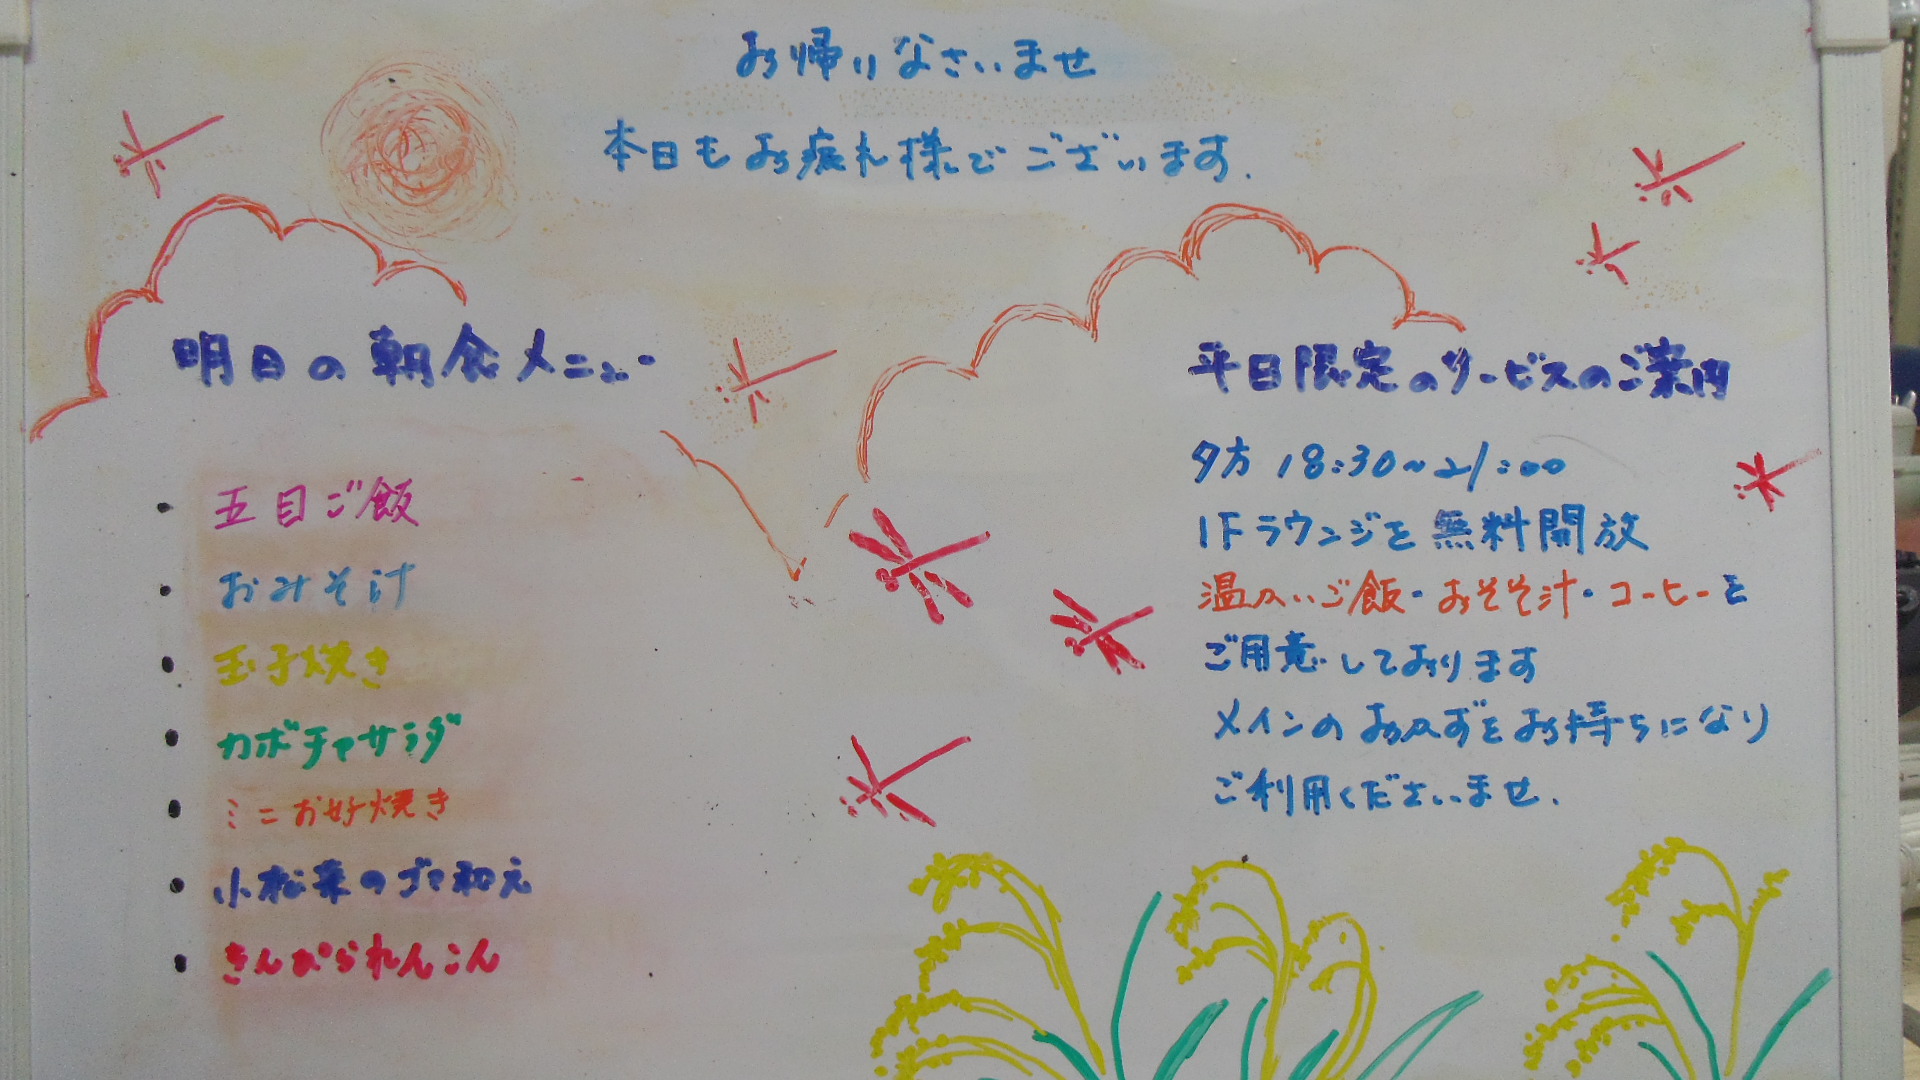 お帰りなさいませ
本日もお疲れ様でございます.
明日の朝食メニュー
・五目ご飯
・おみそ汁
・玉子焼き
・カボチャサラダ
・ミニお好焼き
・小松菜のゴマ和え
・きんぴられんこん
平日限定のサービスのご案内
夕方 18:30~21:00
1Fラウンジを無料開放
温かいご飯・おそそ汁・コーヒーを
ご用意しております
メインのおかずをお持ちになり
ご利用くださいませ.